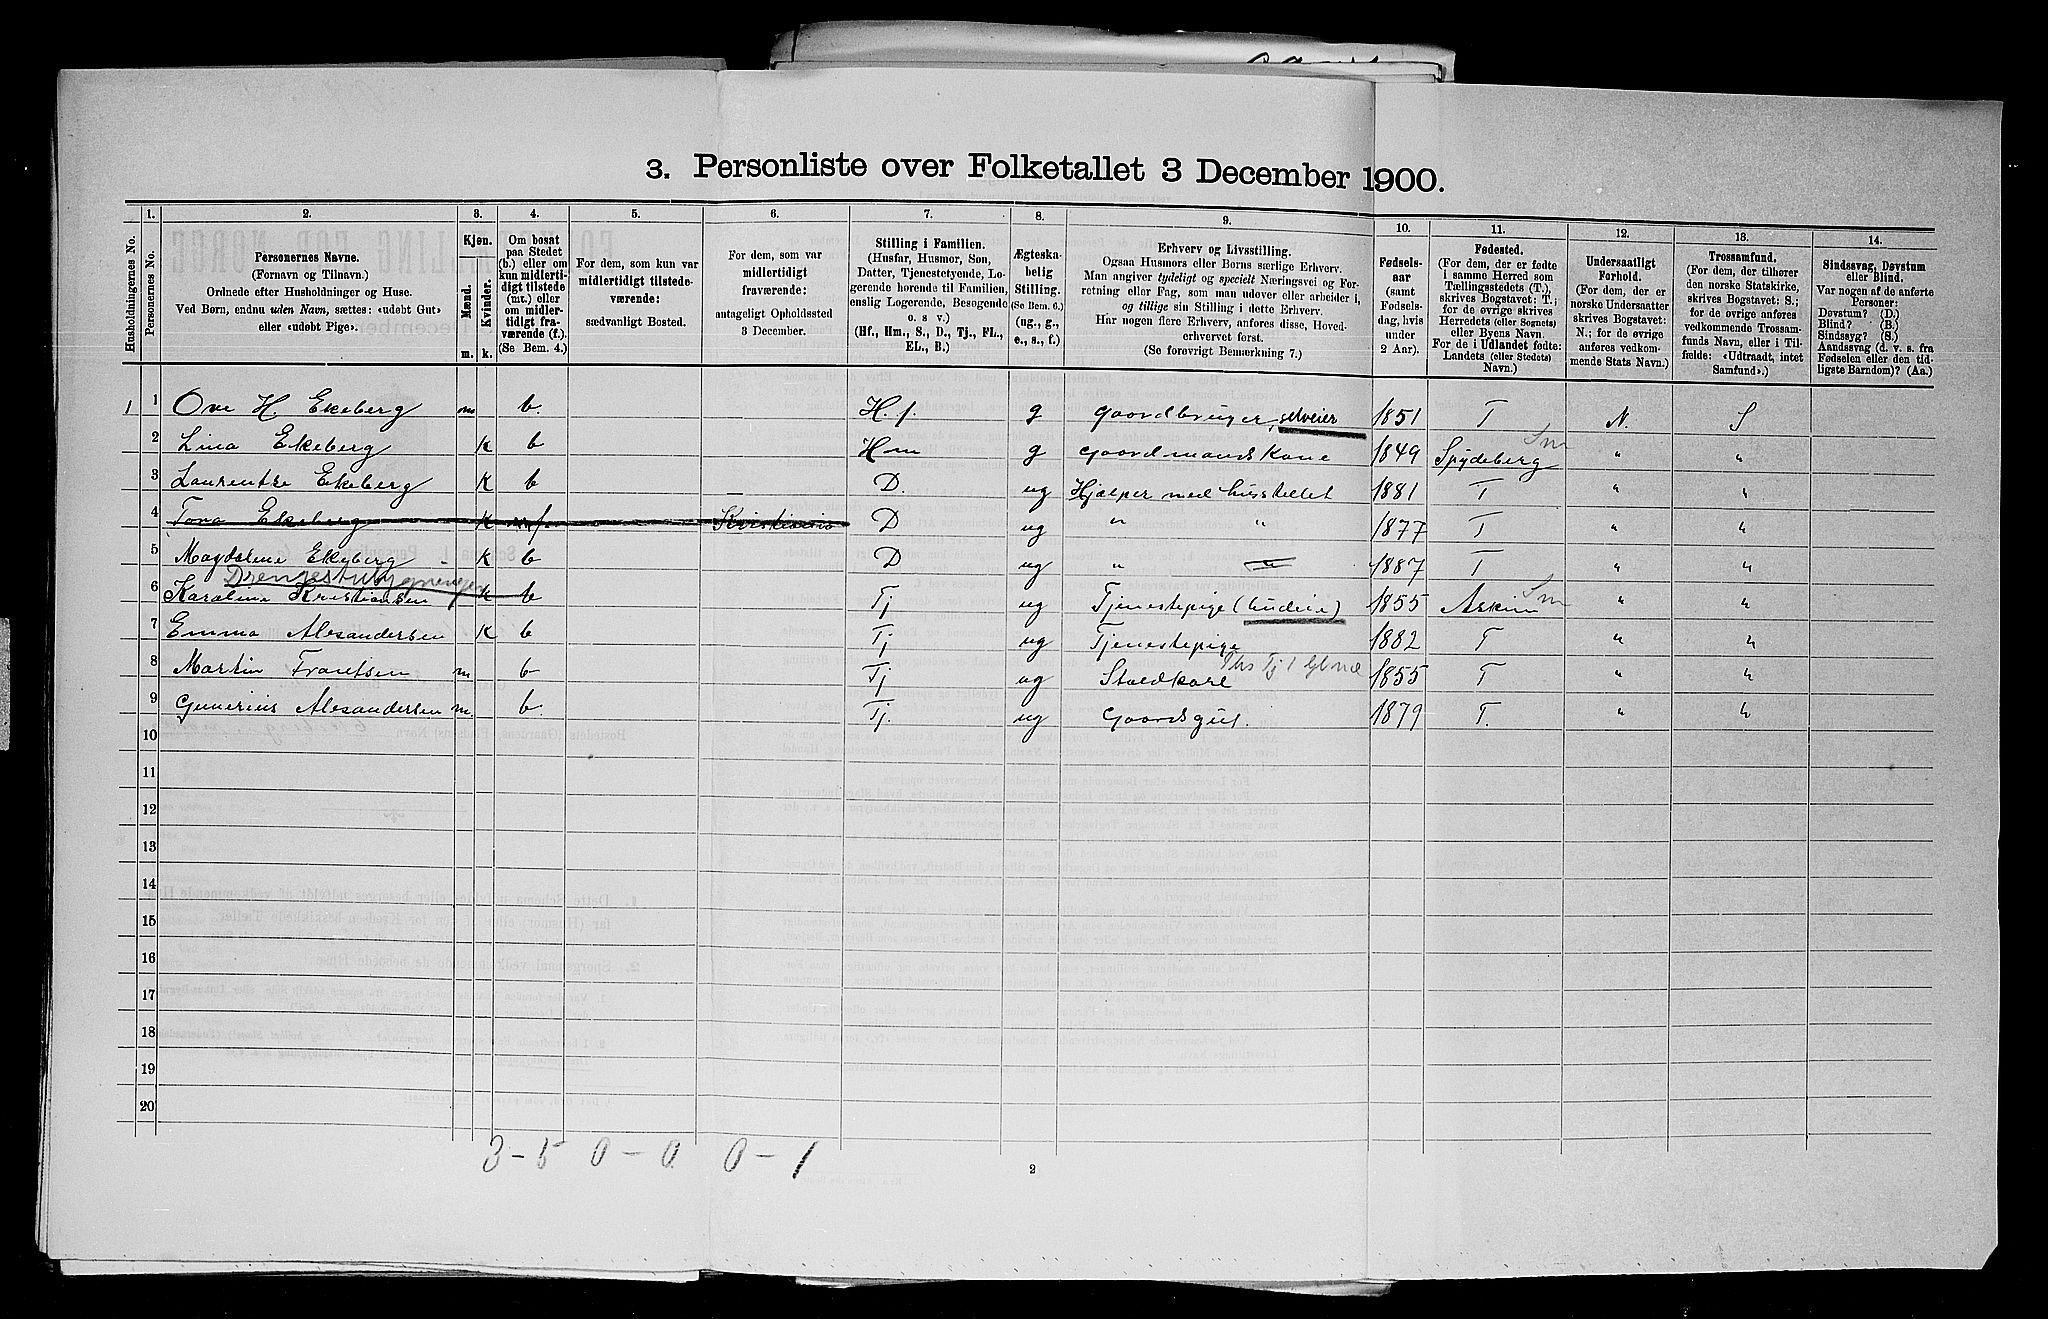 3. Personliste over Folketallet 3 December 1900.
Husholdningernes No.
1. Personernes No.
2. Personernes Navne. (Fornavn og Tilnavn.) Ordnede efter Husholdninger og Huse. Ved Børn, endnu uden Navn, sættes: «udøbt Gut» eller «udøbt Pige».
3. Kjøn. Mænd. m. Kvinder. k.
4. Om bosat paa Stedet (b.) eller om kun midlertidigt tilstede (mt.) eller om midlertidigt fraværende (f.) (Se Bem. 4.)
5. For dem, som kun var midlertidigt tilstedeværende: sædvanligt Bosted.
6. For dem, som var midlertidigt fraværende: antageligt Opholdssted 3 December.
7. Stilling i Familien. (Husfar, Husmor, Søn, Datter, Tjenestetyende, Logerende horende til Familien, enslig Logerende, Besøgende o. s v.) (Hf., Hm., S., D., Tj., FL., EL., B.)
8. Ægteskabelig Stilling. (Se Bem. 6.) (ug., g., e., s., f.)
9. Erhverv og Livsstilling. Ogsaa Husmors eller Børns særlige Erhverv. Man angiver tydeligt og specielt Næringsvei og Forretning eller Fag, som man udøver eller arbeider i, og tillige sin Stilling i dette Erhverv. Har nogen flere Erhverv, anføres disse, Hovederhvervet først. (Se forøvrigt Bemærkning 7.)
10. Fødselsaar (samt Fødselsdag, hvis under 2 Aar).
11. Fødested. (For dem, der er fødte i samme Herred som Tællingsstedets (T.), skrives Bogstavet: T.; for de øvrige skrives Herredets (eller Sognets) eller Byens Navn. For de i Udlandet fødte: Landets (eller Stedets) Navn.)
12. Undersaatligt Forhold. (For dem, der er norske Undersaatter skrives Bogstavet: N.; for de øvrige anføres vedkommende Stats Navn.)
13. Trossamfund. (For dem, der tilhører den norske Statskirke, skrives Bogstavet: S.; for de øvrige anføres vedkommende Trossamfunds Navn, eller i Tilfælde: «Udtraadt, intet Samfund».)
14. Sindssvag, Døvstum eller Blind. Var nogen af de anførte Personer: Døvstum? (D.) Blind? (B.) Sindssyg? (S.) Aandssvag (d. v. s. fra Fødselen eller den tidligste Barndom)? (Aa.)
1 1 Ove H. Ekeberg m b. H. f. g Gaardbruger, selveier 1851 T N. S
2 Lina Ekeberg K b Hm g Gaardmands Kone 1849 Spydeberg Sm " "
3 Laurentse Ekeberg K b D. ug Hjælper med husstellet 1881 T " "
4 Tora Ekeberg K f Kristiania D ug " " 1877 T " "
5 Magdalene Ekeberg K b D ug " " 1887 T " "
Drengestubygningen
6 Karoline Kristiansen K b Tj ug Tjenestepige (budeie) 1855 Askim Sm " "
7 Emma Alexandersen K b Tj ug Tjenestepige 1882 T " "
8 Martin Frantsen m b Tj ug Staldkarl 1855 T " "
9 Gunerius Alexandersen m. b. Tj. ug Gaardsgut. 1879 T. " "
10
11
12
13
14
15
16
17
18
19
20
3-5 0-0. 0-1
2